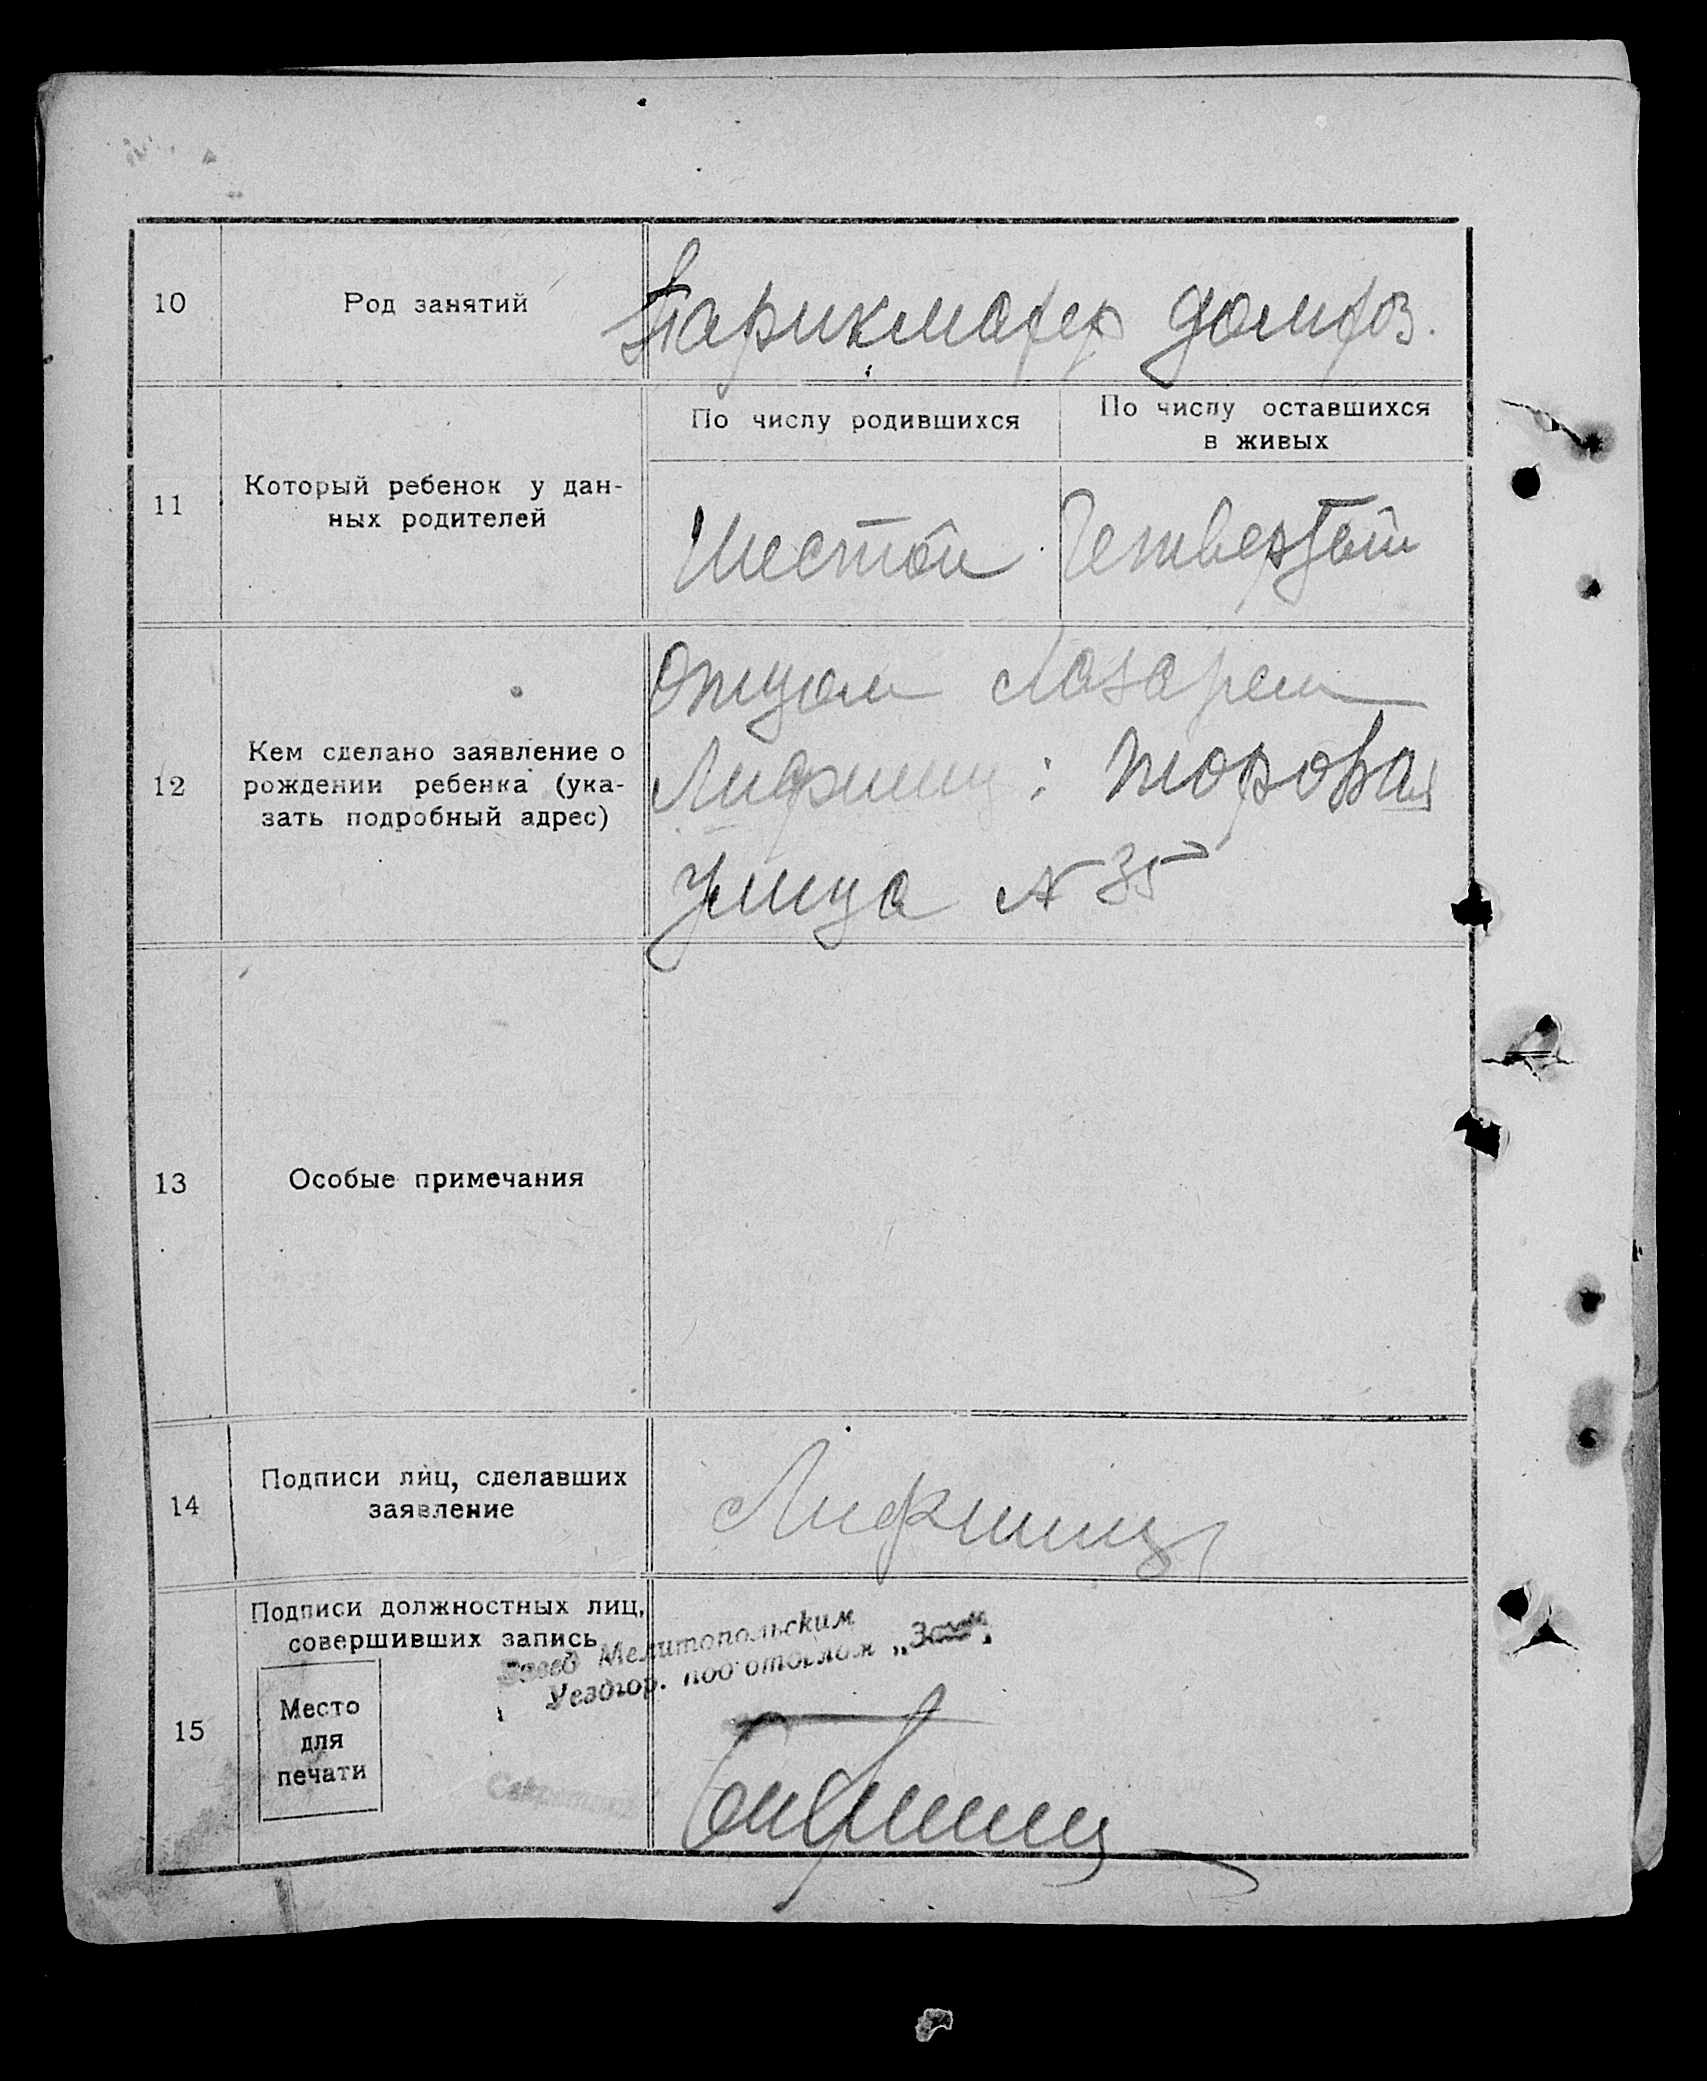 10
Род занятий
Парикмахер домхоз.
11
Который ребенок у дан-
ных родителей
По числу родившихся
По числу оставшихся
в живых
Шестой
Четвертый
12
Кем сделано заявление о
рождении ребенка (ука-
зать подробный адрес)
Отцом Лазарем
Лифшиц: Торговая
улица № 35
13
Особые примечания
14
Подписи лиц, сделавших
заявление
Лифшиц
15
Подписи должностных лиц,
совершивших запись
Место
для
печати
Завед Мелитопольским
Уездгор. подотделом „Загс".
Секретарь